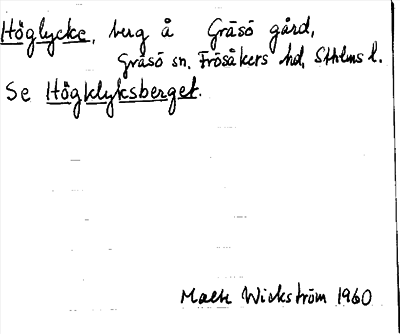 Höglycke, berg å Gräsö gård,
Gräsö sn. Frösåkers hd, Sthlms l.
Se Högklyksberget.
Wickström 1960